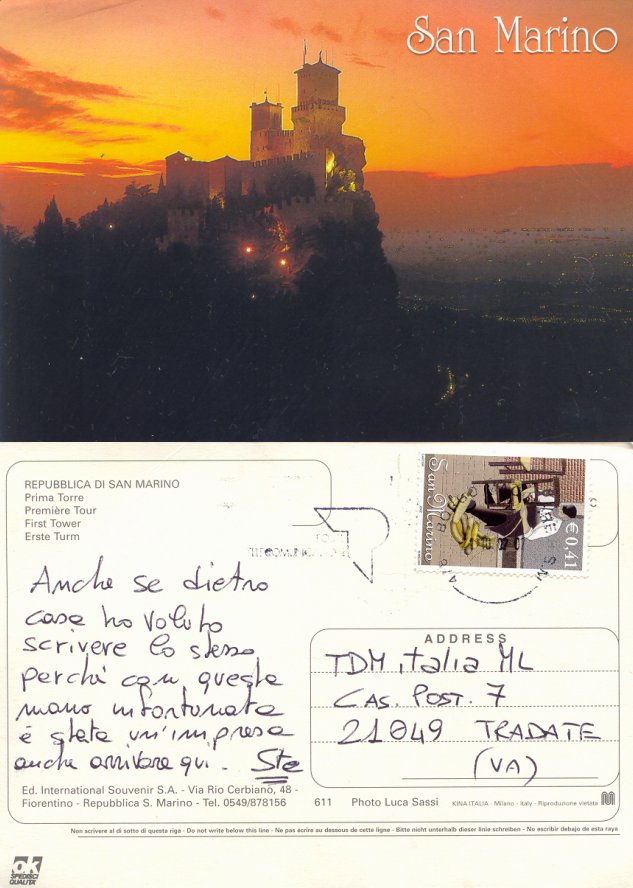 San Marino
REPUBBLICA DI SAN MARINO
Prima Torre
Première Tour
First Tower
Erste Turm
San Marino
€ 0,41
Anche se dietro
casa ho voluto
scrivere lo stesso
perché con questa
mano infortunata
è stata un'impresa
anche arrivare qui. Ste
ADDRESS
TDM italia ML
CAS. POST. 7
21049 TRADATE
(VA)
Ed. International Souvenir S.A. - Via Rio Cerbiano, 48 -
Fiorentino - Repubblica S. Marino - Tel. 0549/878156
611 Photo Luca Sassi KINA ITALIA - Milano - Italy - Riproduzione vietata
Non scrivere al di sotto di questa riga - Do not write below this line - Ne pas écrire au dessous de cette ligne - Bitte nicht unterhalb dieser linie schreiben - No escribir debajo de esta raya
ok
SPEDISCI
QUALITA'